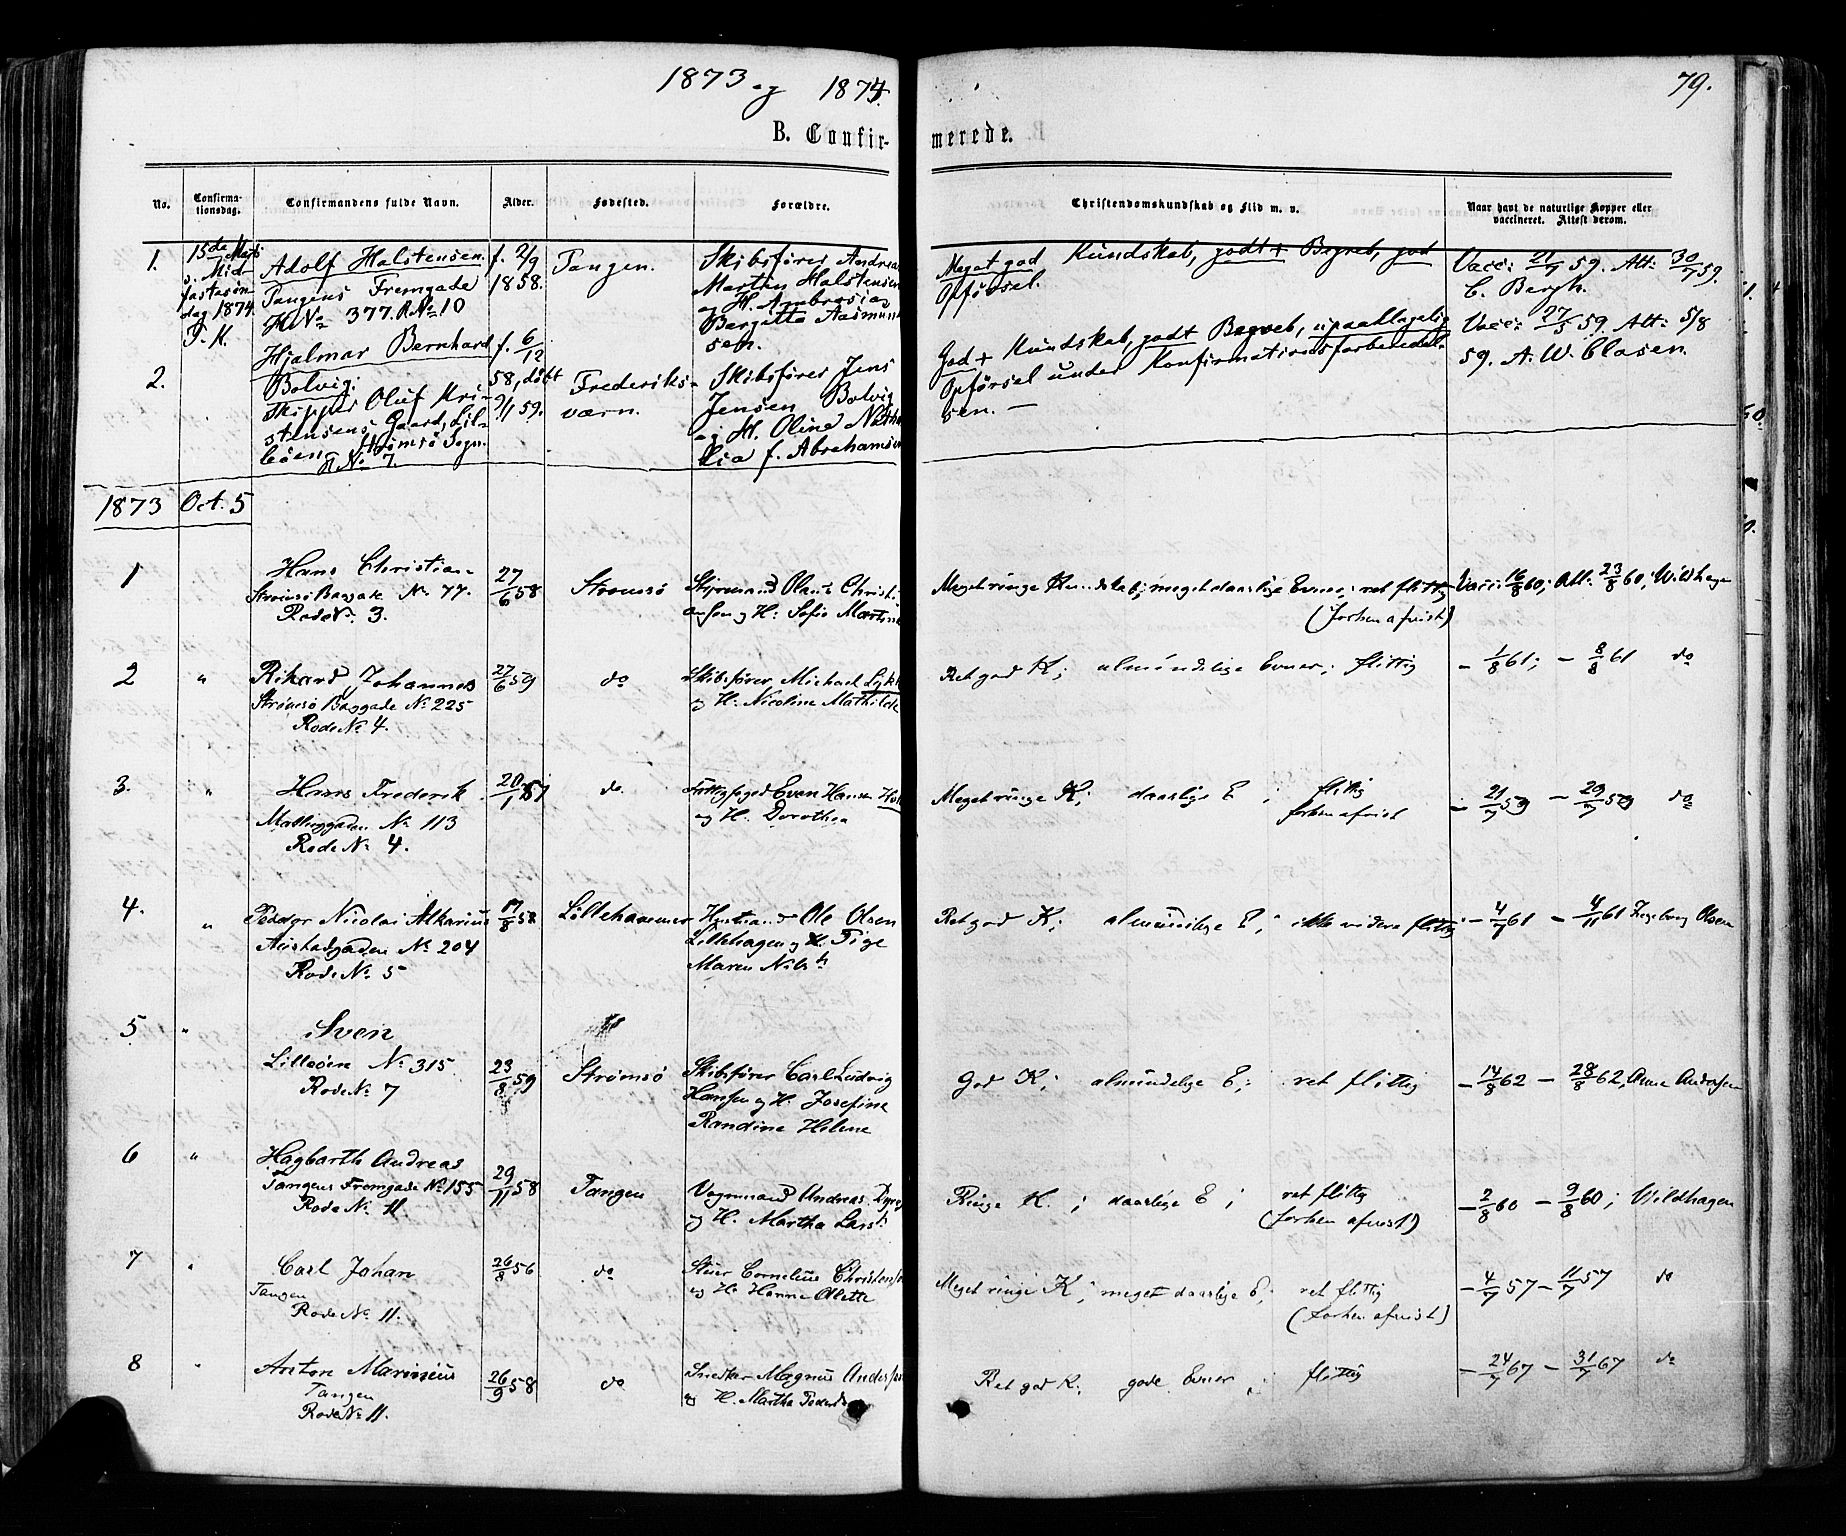 1873 og 1874.
79.
B. Confirmerede.
No. Confirmationsdag. Confirmandens fulde Navn. Alder. Fødested. Forældre. Christendomskundskab og Flid m. v. Naar havt de naturlige Kopper eller vaccineret. Attest derom.
1. 15de Marts Adolf Halstensen f. 2/9 Tangen. Skibsfører Andreas Meget god Kundskab, godt + Begreb, god Vacc: 21/7 59. Att: 30/7 59.
s. Mid- Tangens Fremgade 1858. Martin Halstensen Opførsel. C. Bergh.
fastesøn- HNo 377. RNo 10 og H. Ambrosia
dag 1874. Bergitte Aasmund-
T. K. sen.
2. Hjalmar Bernhard f. 6/12 Frederiks- Skibsfører Jens God + Kundskab, godt Begreb, upaaklagelig Vacc: 27/5 59. Att: 5/8
Bolvig. 58, døbt værn. Jensen Bolvig Opførsel under Konfirmationsforberedel- 59. A. W. Clasen.
Skipper Oluf Kri- 9/1 59. og H. Oline Natha- sen. —
stensens Gaard, Lil- lia f. Abrahamsen
leøen Strømsø Sogn.
R No 7.
1873 Oct. 5
1 Hans Christian 27/6 58 Strømsø Styrmand Olaus Christi- Meget ringe Kundskab; meget daarlige Evner; ret flittig Vacc: 16/8 60; Att: 23/8 60; Wildhagen
Strømsø Baggade No 77. ansen og H: Sofie Martine (forhen afvist)
Rode No. 3.
2 " Rikard Johannes 27/6 59 do Skibsfører Michael Lykke Ret god K; almindelige Evner; flittig – 1/8 61; – 8/8 61 do
Strømsø Baggade No 225 og H. Nicoline Mathilde
Rode No 4.
3. " Hans Frederik 20/1 57 do Fattigfoged Even Hansen Meget ringe K; daarlige E; flittig – 21/7 59 – 29/7 59 do
No 113 og H. Dorothea forhen afvist
Rode No 4.
4. " Peder Nicolai 17/8 58 Lillehammer Ole Olsen Ret god K; almindelige E; ikke videre flittig – 4/7 61 – 4/11 61 Ingeborg Olsen
No 204 Lillehagen og H.
Rode No 5 Maren
5 " Sven
Lilleøen No 315 23/8 59 Strømsø Skibsfører Carl Ludvig God K; almindelige E; ret flittig – 14/8 62 – 28/8 62, Anne Andersen
Rode No 7 Hansen og H. Josefine
Randine Helene
6 " Hagbarth Andreas
Tangens Fremgade No 155 29/11 58 Tangen Vognmand Andreas Ringe K.; daarlige E; ret flittig – 2/8 60 – 9/8 60; Wildhagen
Rode No 11 og H. Martha Larsd. (forhen afvist)
7 " Carl Johan 26/8 56 do Stuer Cornelius Christensen Meget ringe K; meget daarlige E; ret flittig – 4/7 57 – 11/7 57 do
Tangen og H. Hanne Olette (forhen afvist)
Rode No 11.
8 " Anton Marinius 26/9 58 do Snedker Magnus Andersen Ret god K; gode Evner; flittig – 24/7 67 – 31/7 67 do
Tangen og H. Martha
Rode No 11.